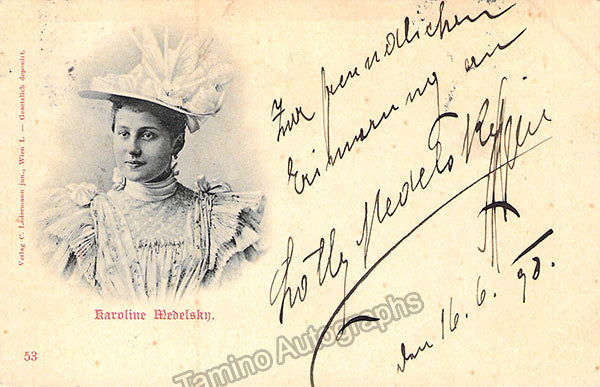 Verlag C. Ledermann jun., Wien I. — Gesetzlich deponirt.
Karoline Medelsky.
53
Zur freundlichen
Erinnerung an
Lotty Medelsky
den 16. 6. 98.
Tamino Autographs